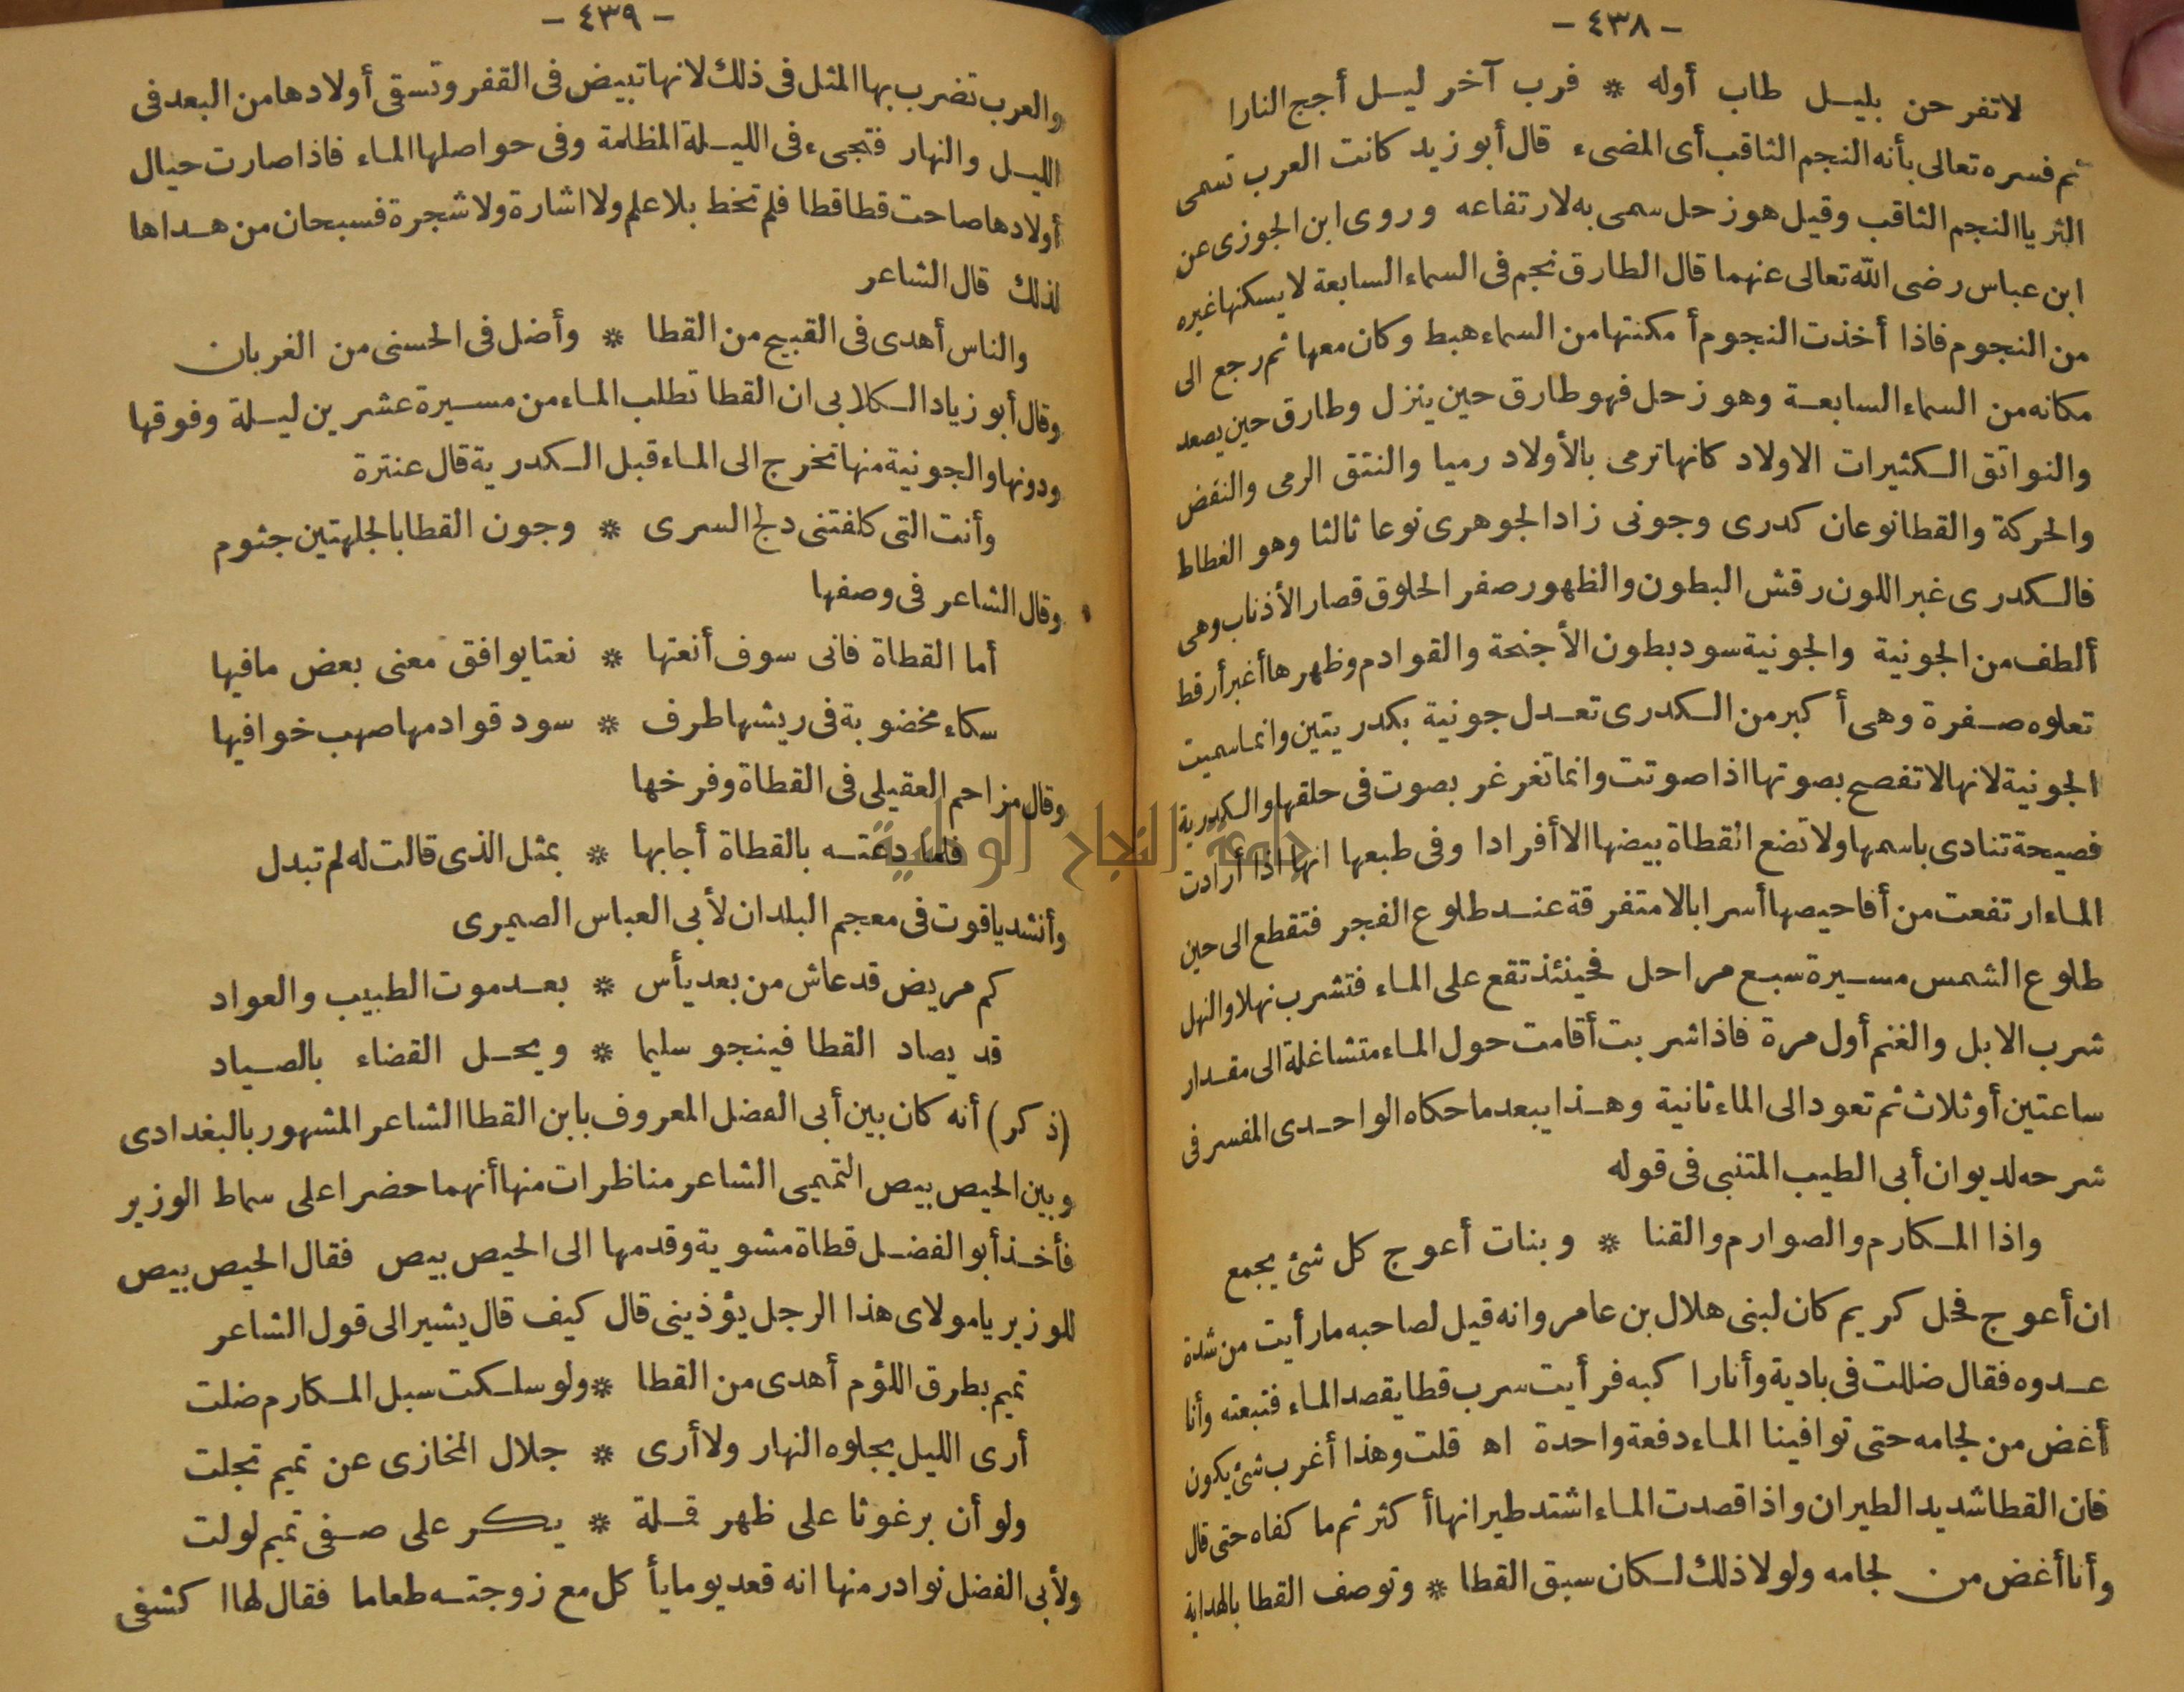 - ٤٣٨ -
لا تفرحن بليل طاب أوله * فرب آخر ليل أجج النارا
ثم فسره تعالى بأنه النجم الثاقب أى المضىء قال أبو زيد كانت العرب تسمى
الثريا النجم الثاقب وقيل هو زحل سمى به لارتفاعه وروى ابن الجوزى عن
ابن عباس رضى الله تعالى عنهما قال الطارق نجم فى السماء السابعة لا يسكنها غيره
من النجوم فاذا أخذت النجوم أمكنتها من السماء هبط وكان معها ثم رجع الى
مكانه من السماء السابعة وهو زحل فهو طارق حين ينزل وطارق حين يصعد
والنواتق الكثيرات الاولاد كانها ترمى بالأولاد رميا والنتق الرمى والنفض
والحركة والقطا نوعان كدرى وجونى زاد الجوهرى نوعا ثالثا وهو الغطاط
فالكدرى غبر اللون رقش البطون والظهور صفر الحلوق قصار الأذناب وهى
ألطف من الجونية والجونية سود بطون الأجنحة والقوادم وظهرها أغبر أرقط
تعلوه صفرة وهى أكبر من الكدرى تعدل جونية بكدريتين وانما سميت
الجونية لانها لا تفصح بصوتها اذا صوتت وانما تغرغر بصوت فى حلقها والكدرية
فصيحة تنادى باسمها ولا تضع القطاة بيضها الا أفرادا وفى طبعها انها اذا أرادت
الماء ارتفعت من أفاحيصها أسرابا لا متفرقة عند طلوع الفجر فتقطع الى حين
طلوع الشمس مسيرة سبع مراحل فحينئذ تقع على الماء فتشرب نهلا والنهل
شرب الابل والغنم أول مرة فاذا شربت أقامت حول الماء متشاغلة الى مقدار
ساعتين أو ثلاث ثم تعود الى الماء ثانية وهذا يبعد ما حكاه الواحدى المفسر فى
شرحه لديوان أبى الطيب المتنبى فى قوله
واذا المكارم والصوارم والقنا * وبنات أعوج كل شئ يجمع
ان أعوج فحل كريم كان لبنى هلال بن عامر وانه قيل لصاحبه ما رأيت من شدة
عدوه فقال ضللت فى بادية وأنا راكبه فرأيت سرب قطا يقصد الماء فتبعته وأنا
أغض من لجامه حتى توافينا الماء دفعة واحدة اه قلت وهذا أغرب شئ يكون
فان القطا شديد الطيران واذا قصدت الماء اشتد طيرانها أكثر ثم ما كفاه حتى قال
وأنا أغض من لجامه ولولا ذلك لكان سبق القطا * وتوصف القطا بالهداية
- ٤٣٩ -
والعرب تضرب بها المثل فى ذلك لانها تبيض فى القفر وتسقى أولادها من البعد فى
الليل والنهار فتجىء فى الليلة المظلمة وفى حواصلها الماء فاذا صارت حيال
أولادها صاحت قطا قطا فلم تخط بلا علم ولا اشارة ولا شجرة فسبحان من هداها
لذلك قال الشاعر
والناس أهدى فى القبيح من القطا * وأضل فى الحسنى من الغربان
وقال أبو زياد الكلابى ان القطا تطلب الماء من مسيرة عشرين ليلة وفوقها
ودونها والجونية منها تخرج الى الماء قبل الكدرية قال عنترة
وأنت التى كلفتنى دلج السرى * وجون القطا بالجلهتين جثوم
وقال الشاعر فى وصفها
أما القطاة فانى سوف أنعتها * نعتا يوافق معنى بعض ما فيها
سكاء مخضوبة فى ريشها طرف * سود قوادمها صهب خوافيها
وقال مزاحم العقيلى فى القطاة وفرخها
فلما دعته بالقطاة أجابها * بمثل الذى قالت له لم تبدل
جامعة النجاح الوطنية
وأنشد ياقوت فى معجم البلدان لأبى العباس الصميرى
كم مريض قد عاش من بعد يأس * بعد موت الطبيب والعواد
قد يصاد القطا فينجو سليما * ويحل القضاء بالصياد
(ذكر) أنه كان بين أبى الفضل المعروف بابن القطا الشاعر المشهور بالبغدادى
وبين الحيص بيص التميمى الشاعر مناظرات منها أنهما حضرا على سماط الوزير
فأخذ أبو الفضل قطاة مشوية وقدمها الى الحيص بيص فقال الحيص بيص
للوزير يا مولاى هذا الرجل يؤذينى قال كيف قال يشير الى قول الشاعر
تميم بطرق اللؤم أهدى من القطا * ولو سلكت سبل المكارم ضلت
أرى الليل يجلوه النهار ولا أرى * جلال المخازى عن تميم تجلت
ولو أن برغوثا على ظهر قملة * يكر على صفى تميم لولت
ولأبى الفضل نوادر منها انه قعد يوما يأكل مع زوجته طعاما فقال لها اكشفى